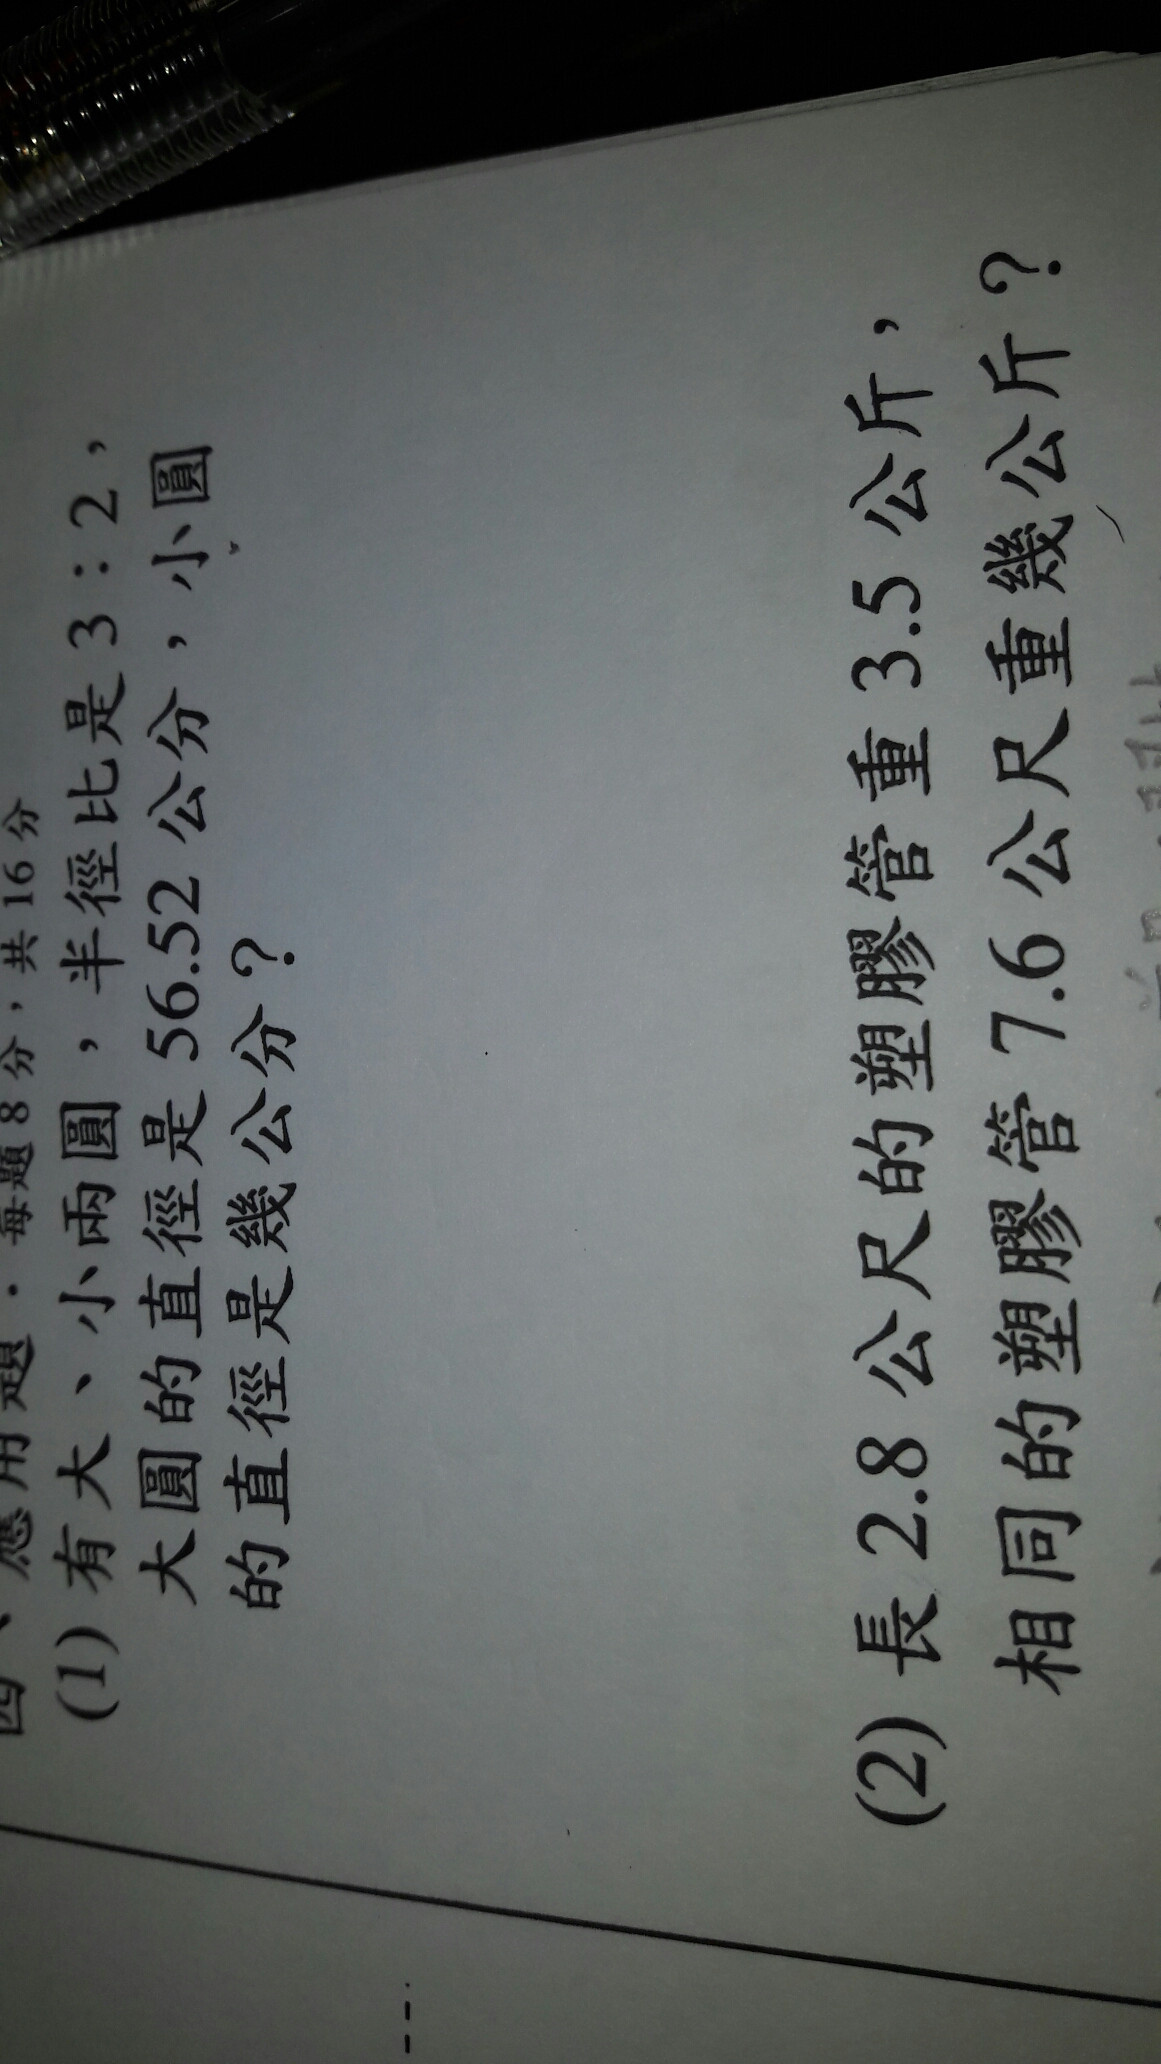 四、應用題：每題8分，共16分
(1) 有大、小兩圓，半徑比是3：2，
大圓的直徑是56.52公分，小圓
的直徑是幾公分？
(2) 長2.8公尺的塑膠管重3.5公斤，
相同的塑膠管7.6公尺重幾公斤？